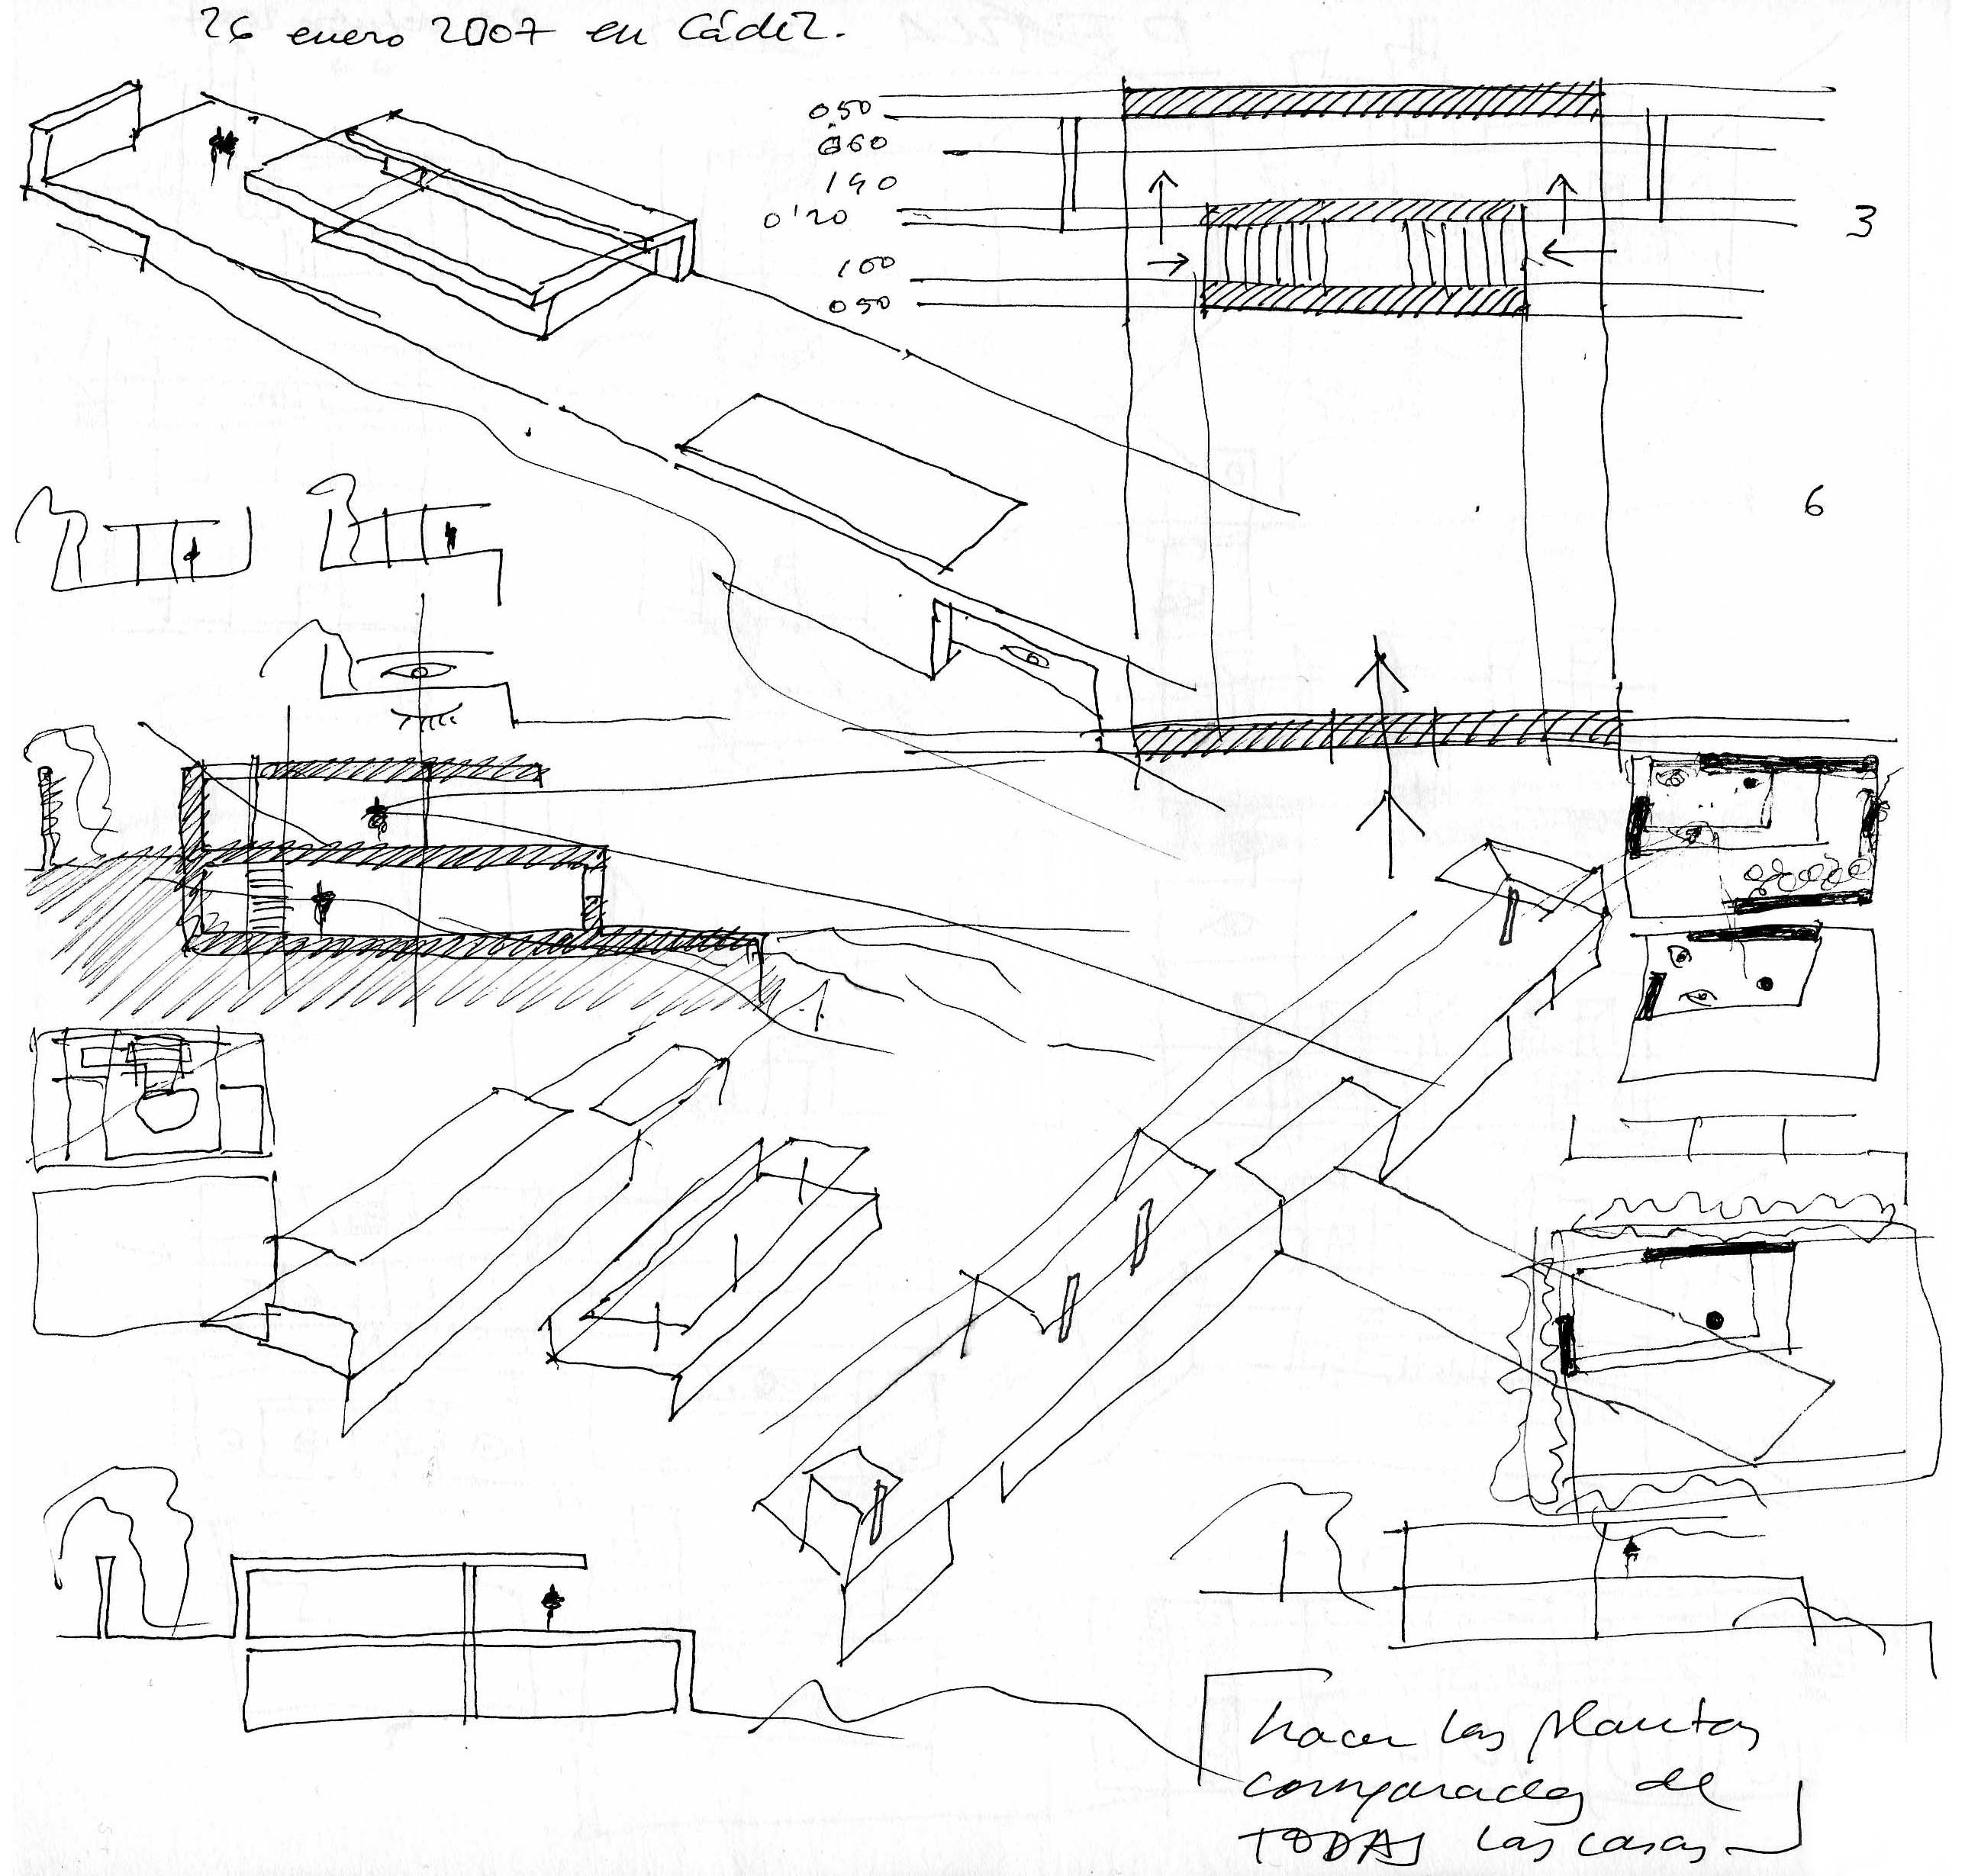 26 enero 2007 en Cádiz.
050
060
190
0'20
3
100
050
6
hacer las plantas
comparadas de
TODAS las casas